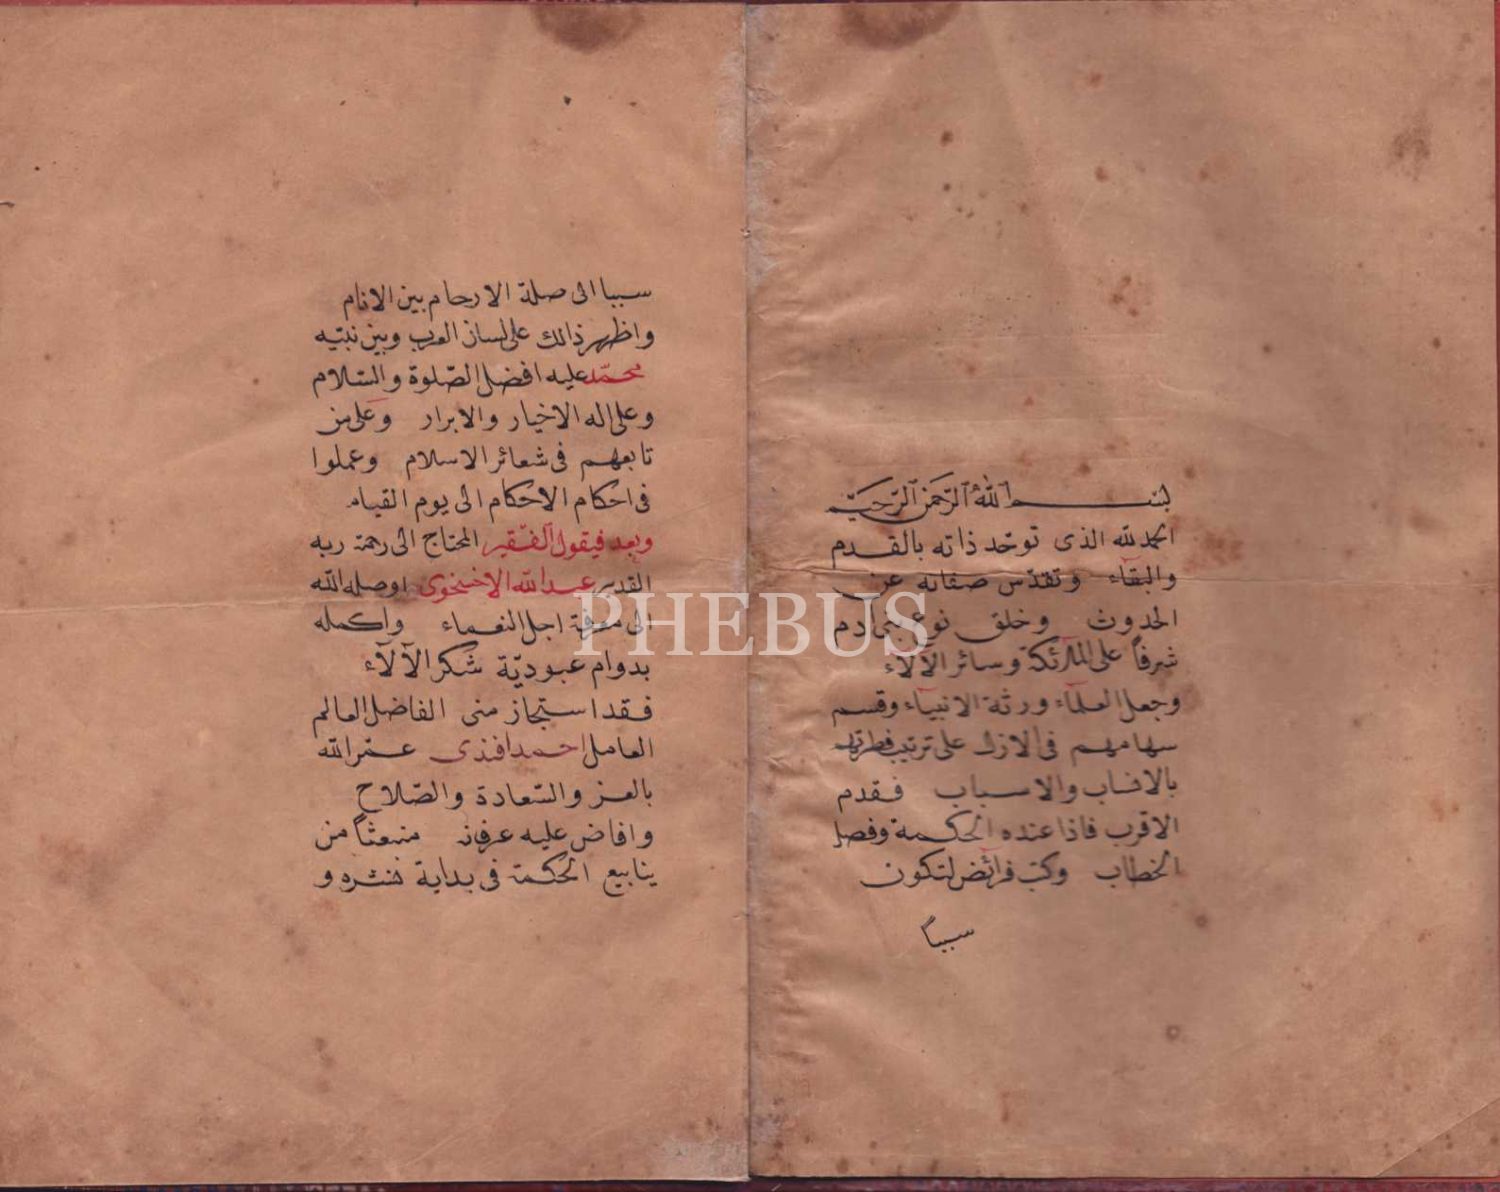 بسم الله الرحمن الرحيم
الحمد لله الذى توحّد ذاته بالقدم
والبقاء وتقدّس صفاته عن
الحدوث وخلق نوع بنى ادم
شرفاً على الملآئكة وسائر الآلآء
وجعل العلمآء ورثة الانبيآء وقسم
سهامهم فى الازل على ترتيب فطرتهم
بالانساب والاسباب فقدم
الاقرب فاذا عنده الحكمة وفصل
الخطاب وكتب فرائض لتكون
سبباً
سببا الى صلة الارحام بين الانام
واظهر ذالك على لسان العرب وبين نبيّه
محمّد عليه افضل الصّلوة والسّلام
وعلى اله الاخيار والابرار وعلى من
تابعهم فى شعائر الاسلام وعملوا
فى احكام الاحكام الى يوم القيام
وبعد فيقول الفقير المحتاج الى رحمة ربه
القدير عبد الله الاخسخوى اوصله الله
الى معرفة اجل النعماء واكمله
بدوام عبوديّة شكر الآلآء
فقد استجاز منى الفاضل العالم
العامل احمد افندى عمّر الله
بالعز والسّعادة والصّلاح
وافاض عليه عرفانه منبعثاً من
ينابيع الحكمة فى بداية و
PHEBUS